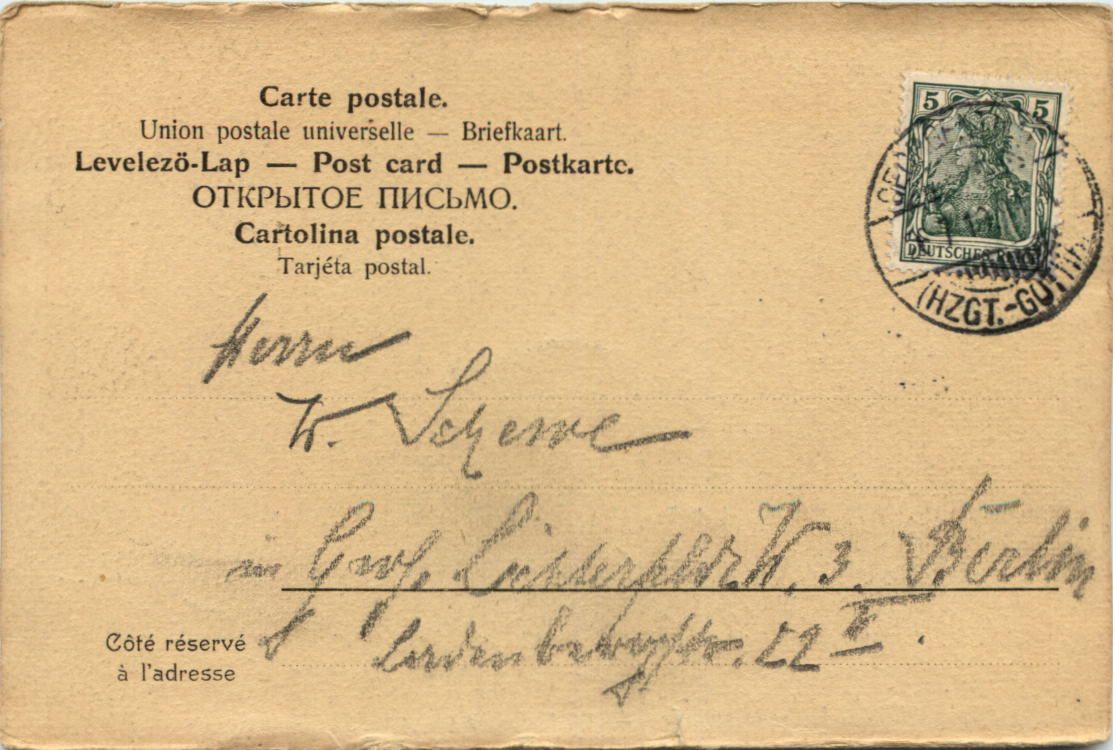 Carte postale.
Union postale universelle — Briefkaart.
Levelező-Lap — Post card — Postkarte.
ОТКРЫТОЕ ПИСЬМО.
Cartolina postale.
Tarjéta postal.
5 5
DEUTSCHES
(HZGT.-GOTHA)
Herrn
W. Schewe
in Groß Lichterfelde W. 3. Berlin
str. 22 II.
Côté réservé
à l'adresse